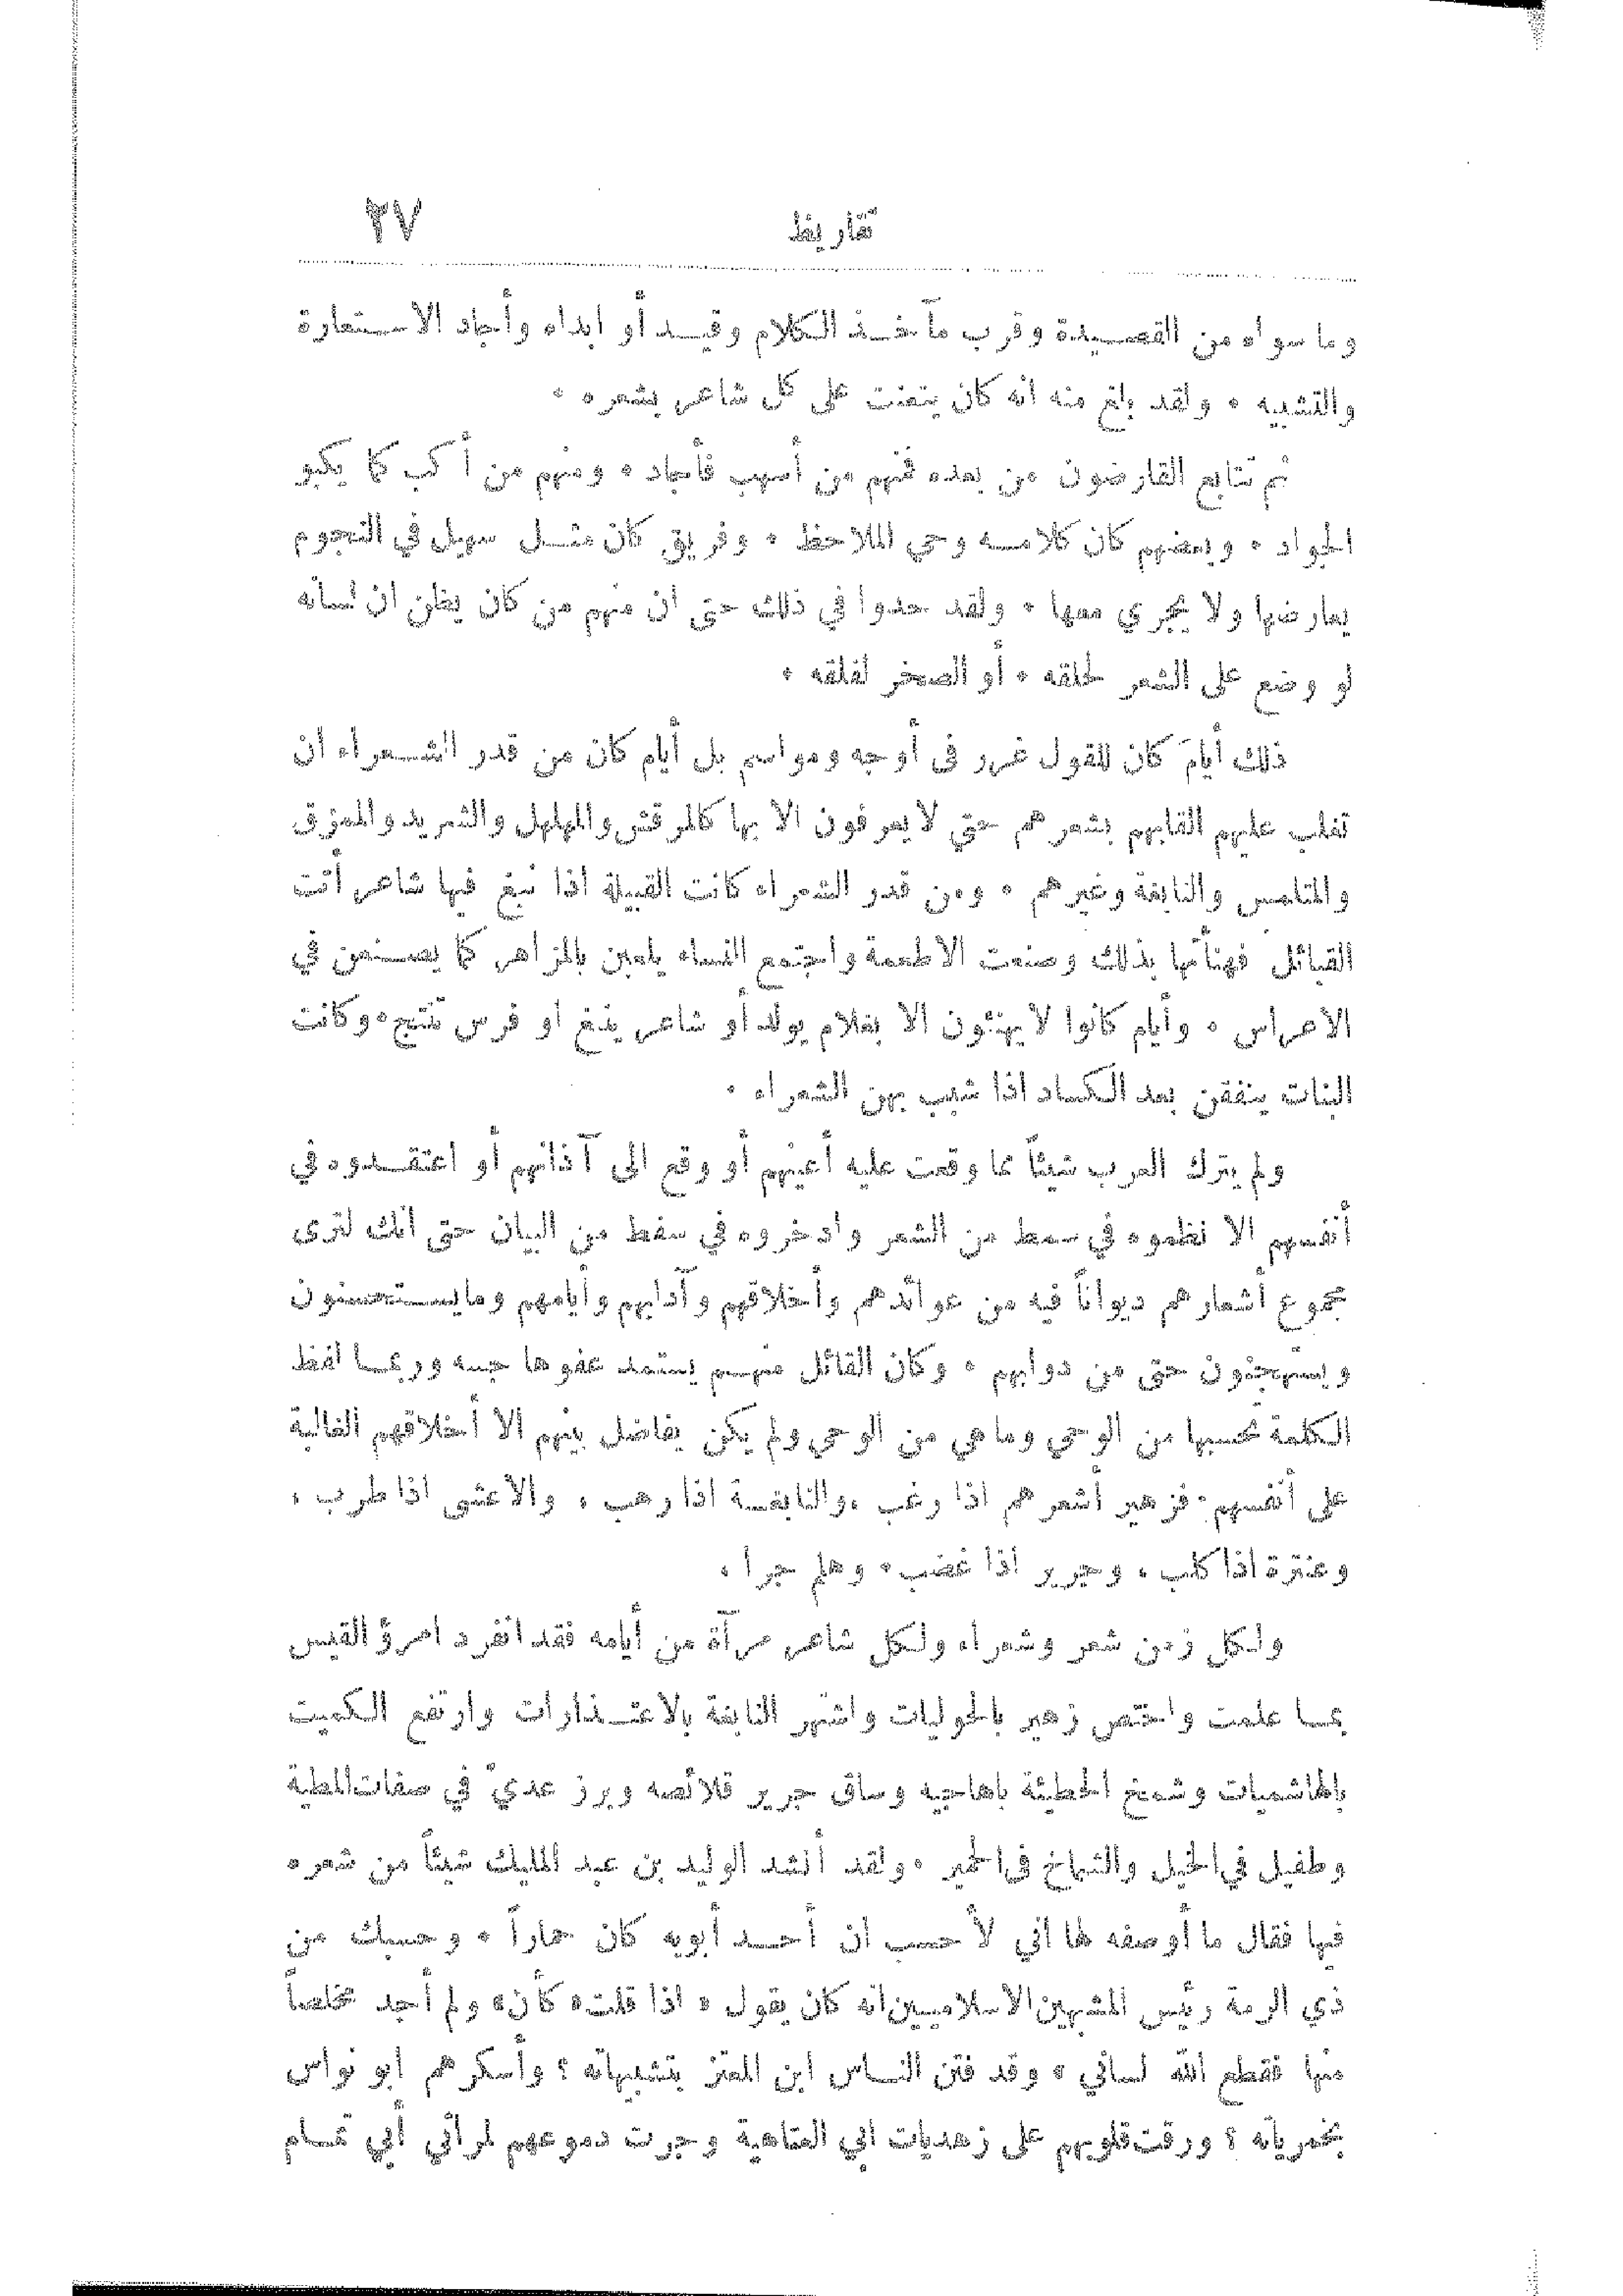 تقاريظ ٣٧
وما سواه من القصيدة وقرب مآخذ الكلام وقيد أوابداه وأجاد الاستعارة
والتشبيه . ولقد بلغ منه انه كان يتعنت على كل شاعر بشعره .
ثم تتابع القارضون من بعده فمنهم من أسهب فأجاد . ومنهم من أكب كما يكبو
الجواد . وبعضهم كان كلامه وحي الملاحظ . وفريق كان مثل سهيل في النجوم
يعارضها ولا يجري معها . ولقد جدوا في ذلك حتى ان منهم من كان يظن ان لسانه
لو وضع على الشعر لحلقه . أو الصخر لفلقه .
ذلك أيامَ كان للقول غرر في أوجه ومواسم بل أيام كان من قدر الشعراء ان
تغلب عليهم القابهم بشعرهم حتى لا يعرفون الا بها كالمرقش والمهلهل والشريد والممزق
والمتلمس والنابغة وغيرهم . ومن قدر الشعراء كانت القبيلة اذا نبغ فيها شاعر أتت
القبائل فهنأتها بذلك وصنعت الاطعمة واجتمع النساء يلعبن بالمزاهر كما يصنعن في
الاعراس . وأيام كانوا لا يهنئون الا بغلام يولد أو شاعر ينبغ او فرس تنتج . وكانت
البنات ينفقن بعد الكساد اذا شبب بهن الشعراء .
ولم يترك العرب شيئاً مما وقعت عليه أعينهم أو وقع الى آذانهم أو اعتقدوه في
أنفسهم الا نظموه في سمط من الشعر وادخروه في سفط من البيان حتى انك لترى
مجموع أشعارهم ديواناً فيه من عوائدهم وأخلاقهم وآدابهم وأيامهم ومايستحسنون
ويستهجنون حتى من دوابهم . وكان القائل منهم يستمد عفو هاجسه وربما لفظ
الكلمة تحسبها من الوحي وماهي من الوحي ولم يكن يفاضل بينهم الا أخلاقهم الغالبة
على أنفسهم . فزهير أشعرهم اذا رغب ، والنابغة اذا رهب ، والاعشى اذا طرب ،
وعنترة اذا كلب ، وجرير اذا غضب . وهلم جرا ،
ولكل زمن شعر وشعراء ولكل شاعر مرآة من أيامه فقد انفرد امرؤ القيس
بما علمت واختص زهير بالحوليات واشتهر النابغة بالاعتذارات وارتفع الكميت
بالهاشميات وشمخ الحطيئة باهاجيه وساق جرير قلائصه وبرز عديّ في صفات المطية
وطفيل في الخيل والشماخ في الحمير . ولقد أنشد الوليد بن عبد المليك شيئاً من شعره
فيها فقال ما أوصفه لها اني لأحسب ان أحد أبويه كان حماراً . وحسبك من
ذي الرمة رئيس المشبهين الاسلاميين انه كان يقول « اذا قلت « كأن » ولم أجد مخلصاً
منها فقطع الله لساني » وقد فتن الناس ابن المعتز بتشبيهاته ؛ وأسكرهم أبو نواس
بخمرياته ؛ ورقت قلوبهم على زهديات أبي العتاهية وجرت دموعهم لمراثي أبي تمام